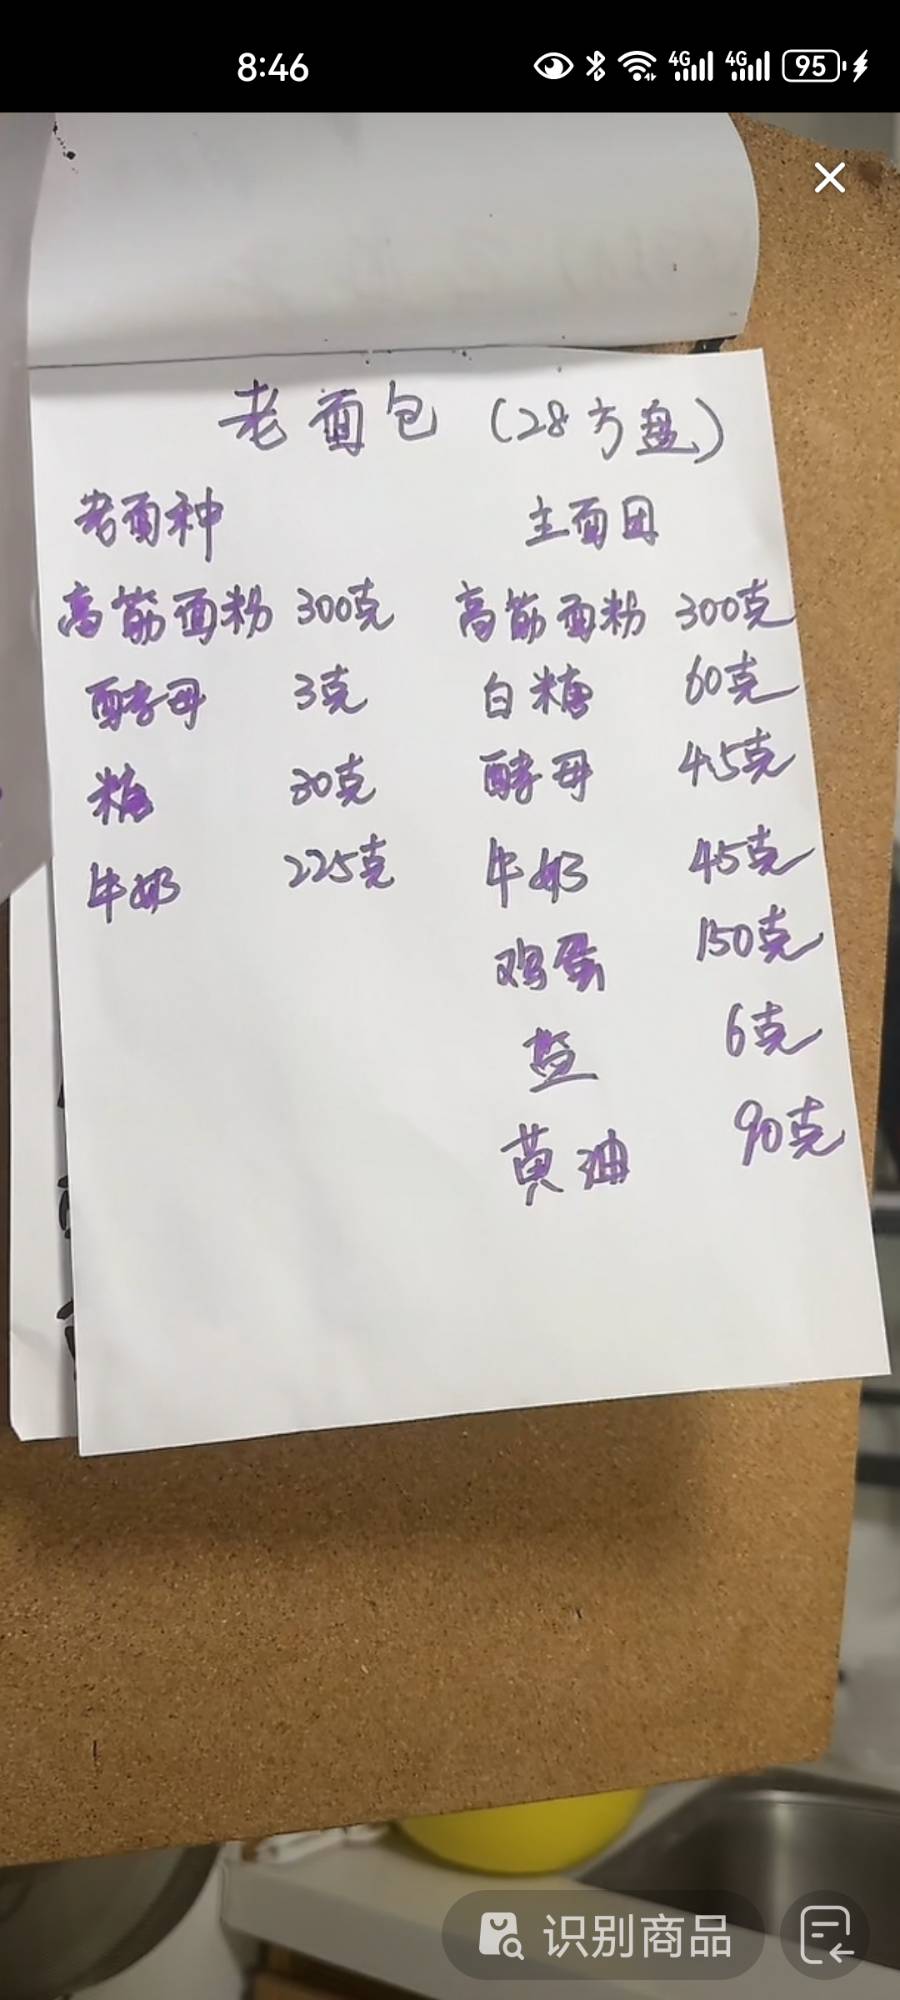 8:46
4G 4G 95
老面包 (28方盘)
老面种 主面团
高筋面粉 300克 高筋面粉 300克
酵母 3克 白糖 60克
糖 30克 酵母 4.5克
牛奶 225克 牛奶 45克
鸡蛋 150克
盐 6克
黄油 90克
识别商品